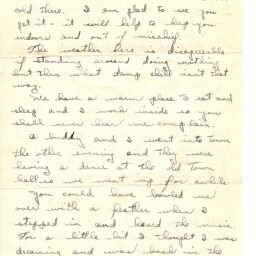 cold there. I am glad to see you
get it - it will help to keep you
indoors and out of mischief.
The weather here is disagreeable
if standing around doing nothing
but then what damp chill isn't that
way.
We have a warm place to eat and
sleep and I work inside so you
shall never hear me complain.
A buddy and I went into town
the other evening and they were
having a dance at the old Town
hall so we went up for awhile
You could have bowled me
over with a feather when I
stepped in and heard the music.
For a little bit I thought I was
dreaming and was back in the